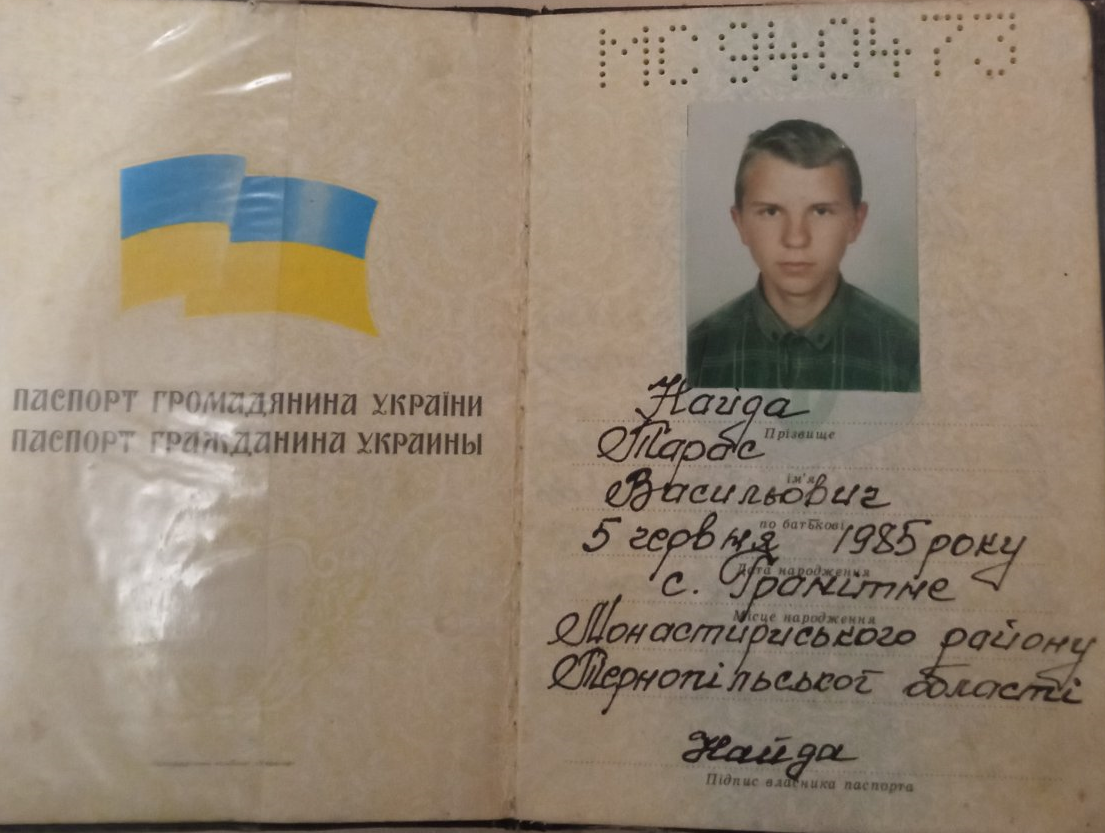 ПАСПОРТ ГРОМАДЯНИНА УКРАЇНИ
ПАСПОРТ ГРАЖДАНИНА УКРАИНЫ
МС 940473
Найда
Прізвище
Тарас
ім'я
Васильович
по батькові
5 червня 1985 року
Дата народження
с. Гранітне
Місце народження
Монастириського району
Тернопільської області
Найда
Підпис власника паспорта